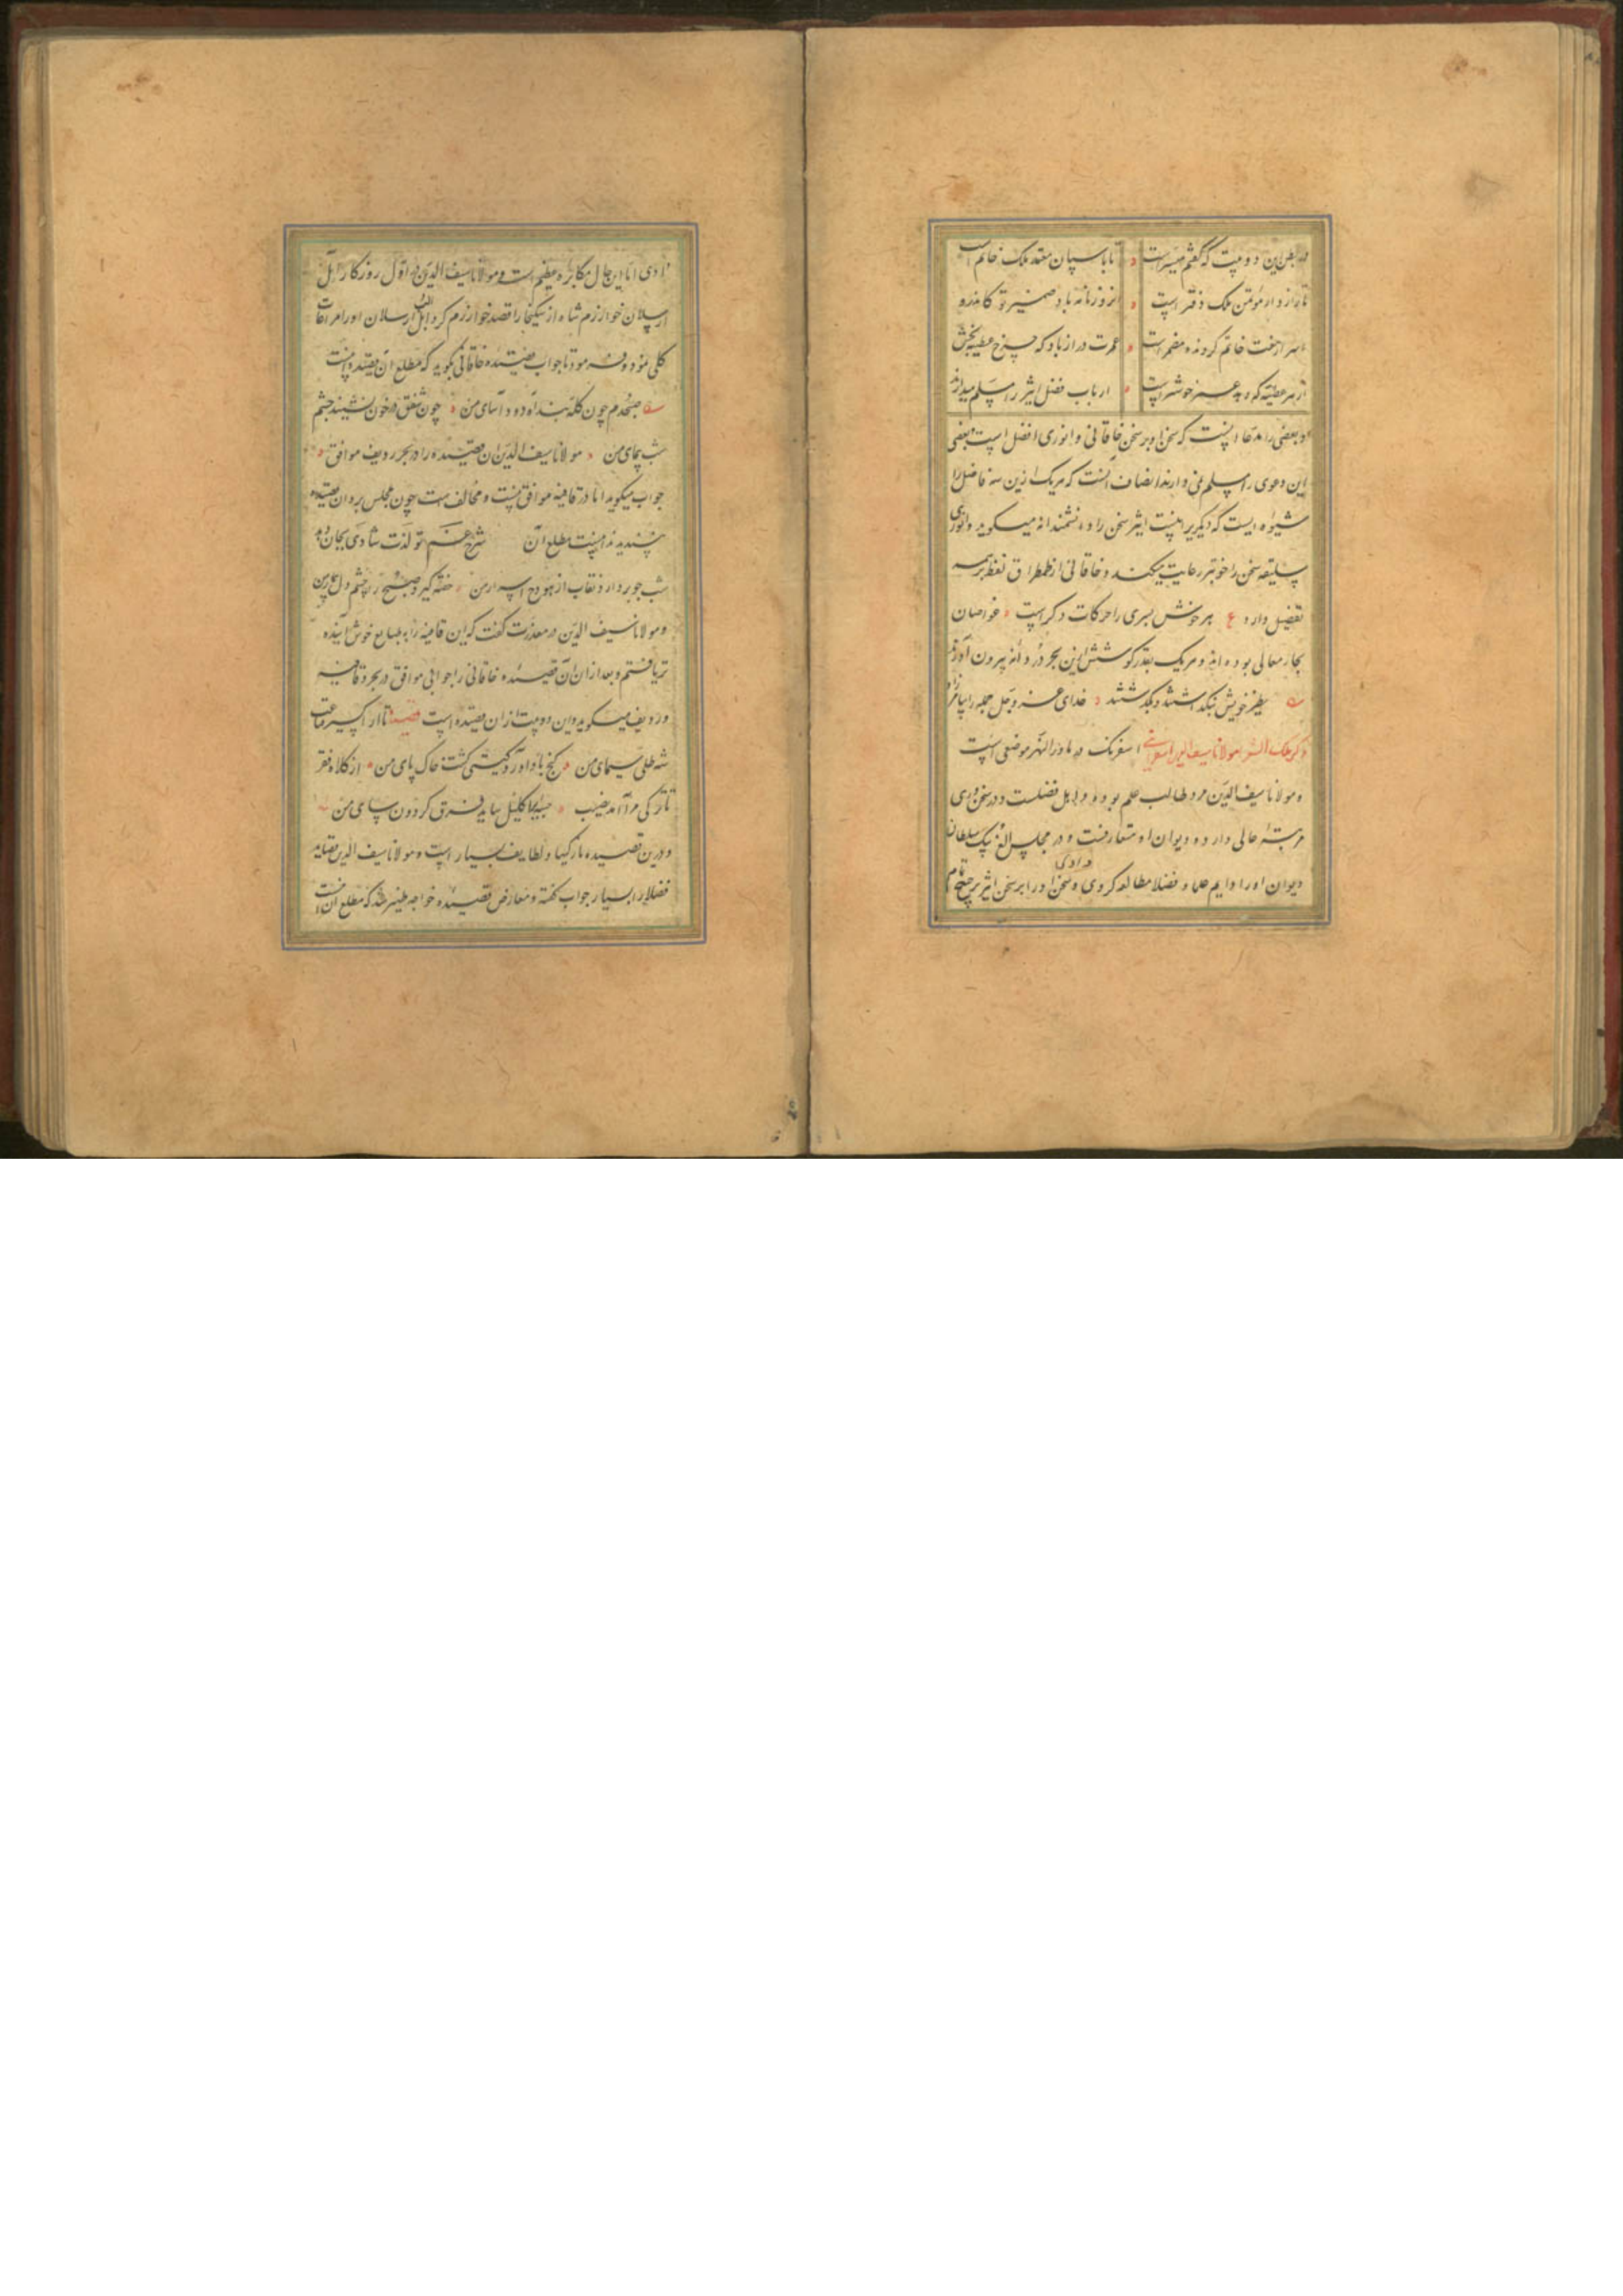 در بعض این دو بیت که گفتم میسر است تا باسپان معتمد ملک خاتم است
تا راز دار مؤتمن ملک دفتر است از روزنامه باد ضمیر تو کاندرو
اسرار هفت خاتم گردنده مضمر است عمرت دراز باد که چرخ عطیه بخش
از هر عطیه که دهد عمر خوشتر است ارباب فضل اثیر را مسلم میدارند
و بعضی را مدعا اینست که سخن او بر سخن خاقانی و انوری افضل است بعضی
این دعوی را مسلم نمی دارند انصاف آنست که هر یک ازین سه فاضل را
شیوه ایست که دیگریرا نیست اثیر سخن را دانشمندانه میگوید و انوری
سلیقه سخن را خوبتر رعایت میکند و خاقانی از طمطراق لفظ بر همه
تفضیل دارد ع هر خوش پسری را حرکات دگر است غواصان
بحار معانی بوده اند و هر یک بقدر کوشش ازین بحر دردانه بیرون آورند
بطرز خویش نیک داشتند و بگذشتند خدای عز و جل جمله را بیامرزاد
ذکر ملک الشعرا مولانا سیف الدین اسفرنگی اسفرنگ در ماورالنهر موضعی است
و مولانا سیف الدین مرد طالب علم بوده و اهل فضلست و در سخنوری
مرتبۀ عالی دارد و دیوان او متعارفست و در مجلس الغ بیک سلطان
دیوان او را دایم علما و فضلا مطالعه کردی و سخن او را بر سخن اثیر ترجیح تمام
دادی
دادی اما این حال مکابره عظیم است و مولانا سیف الدین در اول روزگار ایل
ارسلان خوارزم شاه از بخارا قصد خوارزم کرد و ایل ارسلان او را مراعات
کلی نمود و فرمود تا جواب قصیده خاقانی بگوید که مطلع آن قصیده اینست
صبحدم چون کله بندد آه دود آسای من چون شفق در خون نشیند چشم
شب پیمای من مولانا سیف الدین آن قصیده را در بحر و ردیف موافق
جواب میگوید اما در قافیه موافق نیست و مخالف است چون مجلس بردان قصیده
پسندیدند اینست مطلع آن شرح غم تو لذت شادی بجان دهد
شب چو بردارد نقاب از هودج اسرار من خفته گیرد صبح را چشم و دل بیدار من
و مولانا سیف الدین در معذرت گفت که این قافیه را به طبایع خوش آینده
تر یافتم و بعد از آن آن قصیده خاقانی را جوابی موافق در بحر و قافیه
و ردیف میگوید و این دو بیت از آن قصیده است قصیده تا از اکسیر قناعت
شد طلی سیمای من گنج باد آورد گیتی گشت خاک پای من از کلاه فقر
تا ترکی مرا آمد نصیب جبهۀ اکلیل ساید فرق گردون سای من
و درین قصیده نازکیها و لطایف بسیار است و مولانا سیف الدین قصاید
فضلا را بسیار جواب گفته و معارض قصیده خواجه ظهیر شد که مطلع آن اینست